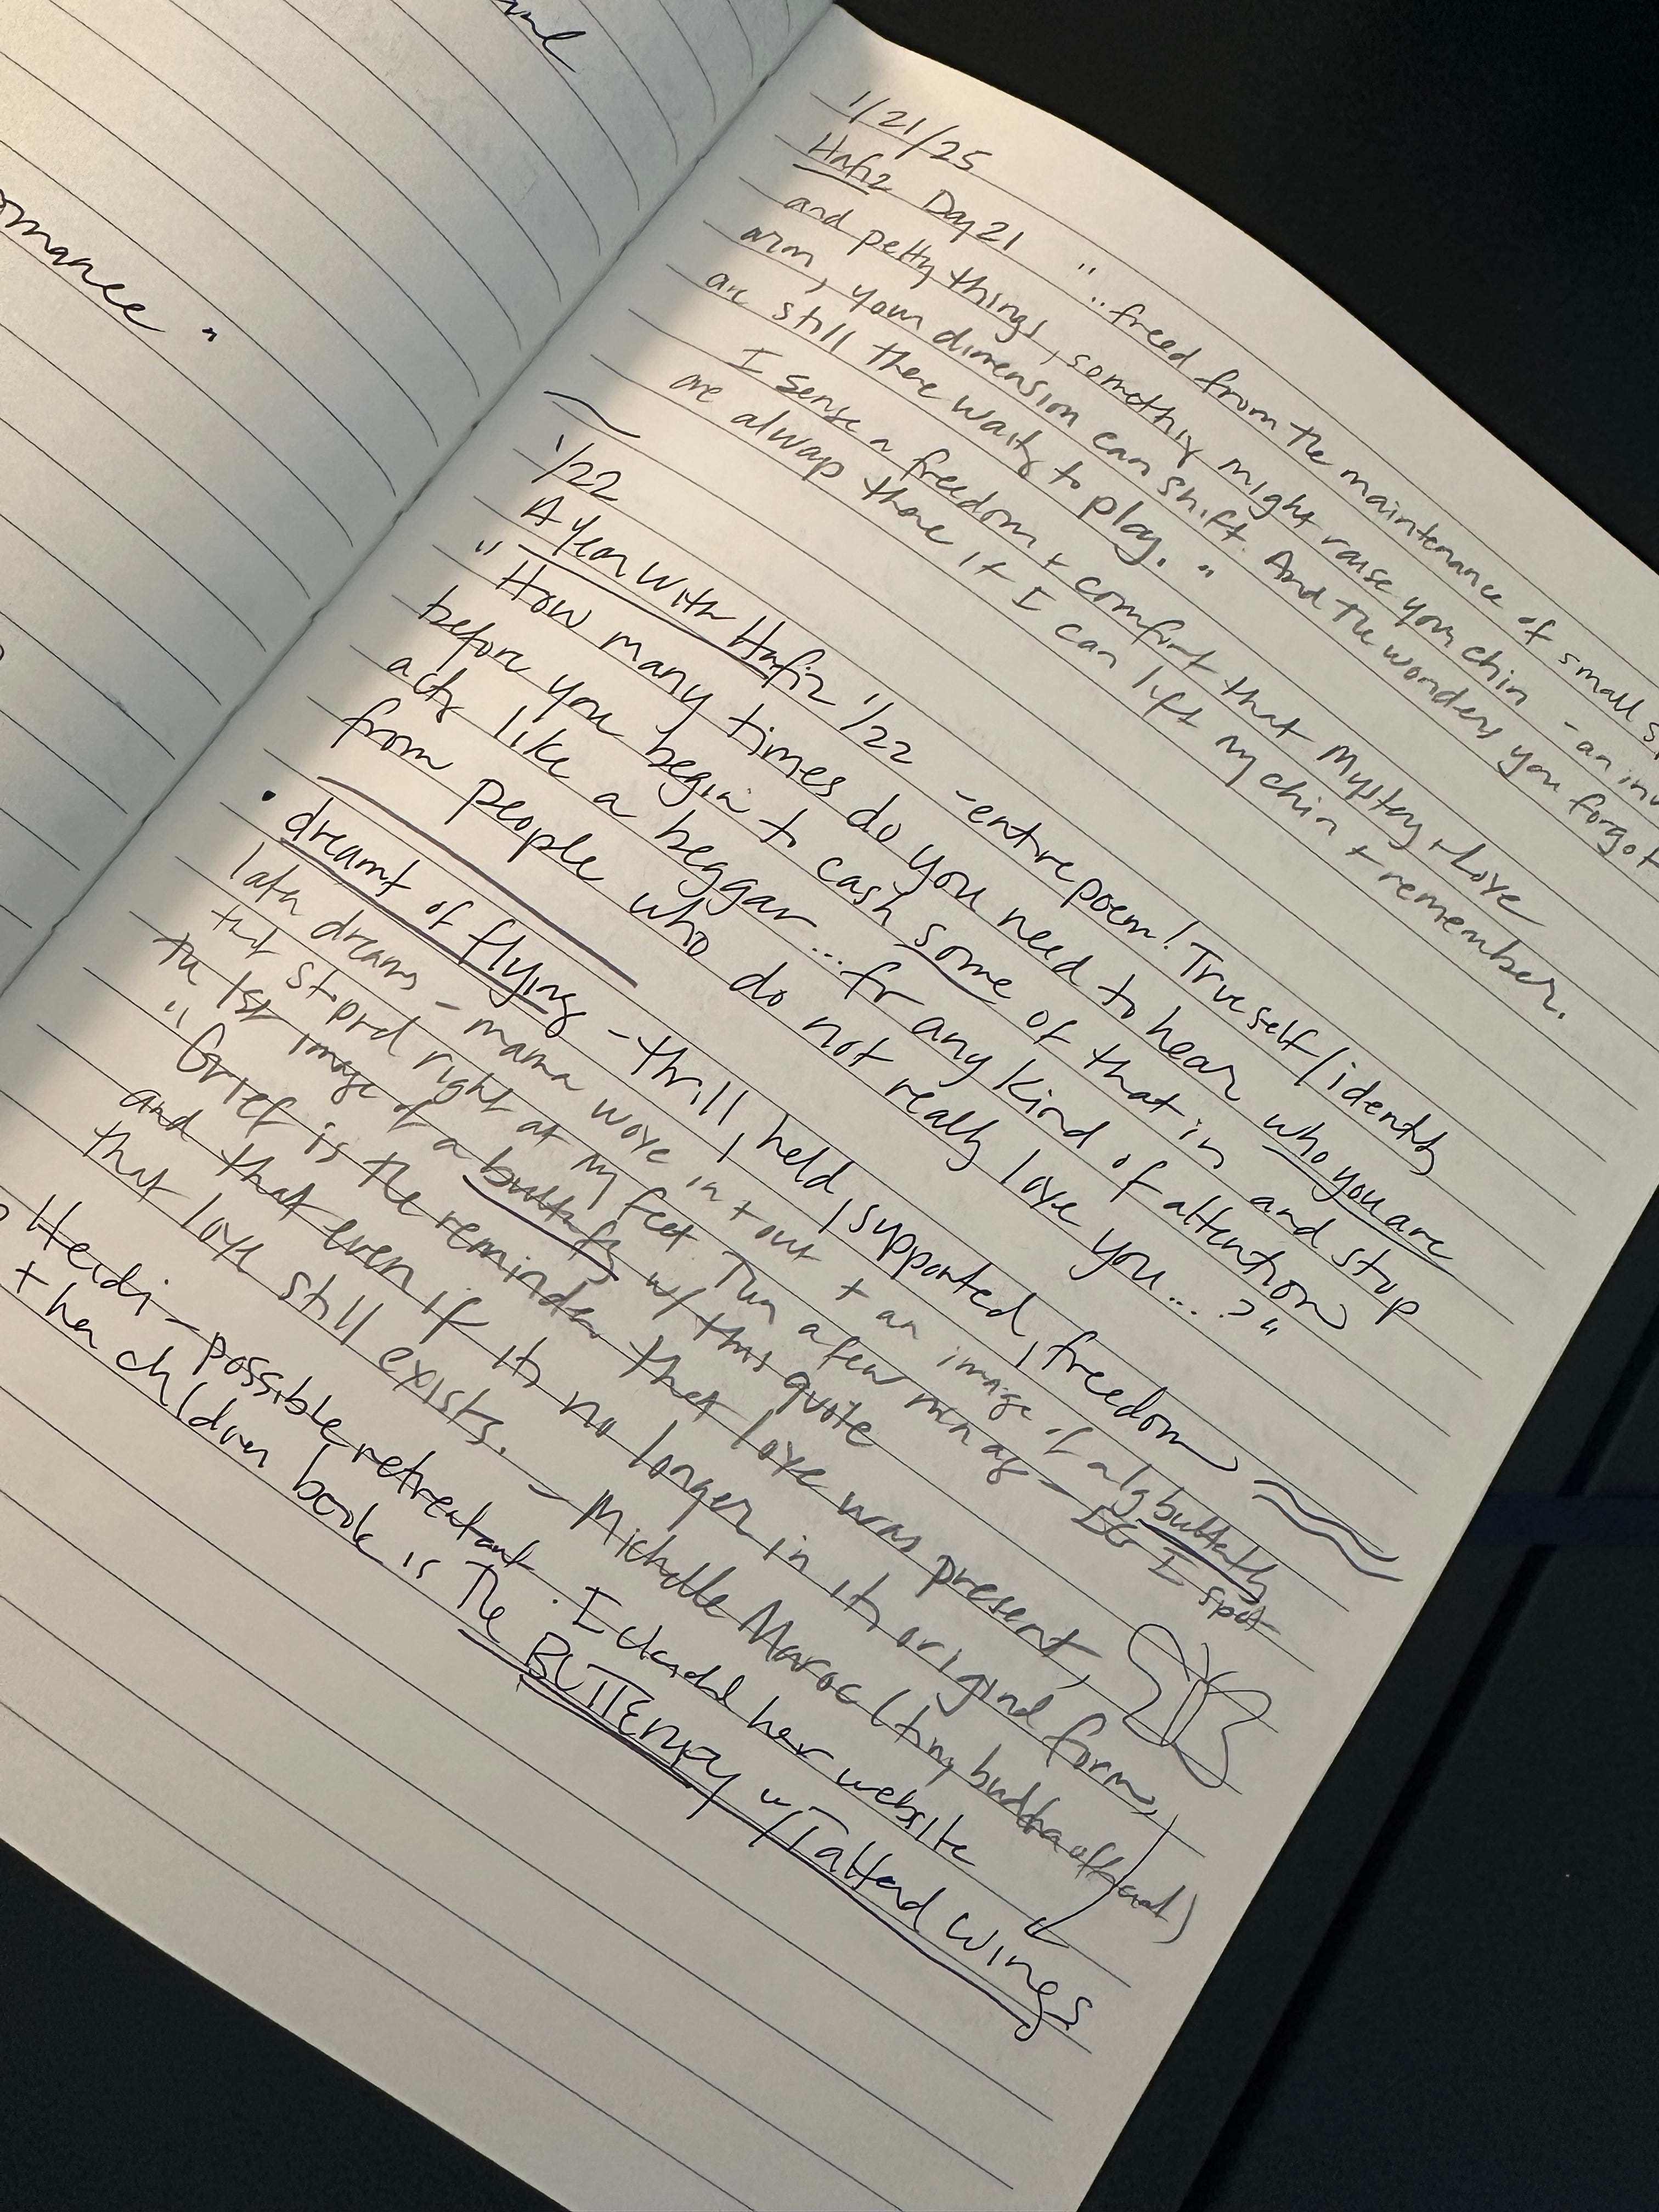 ormance"
1/21/25
Hafiz Day 21 "..freed from the maintenance of small
and petty things, somethig might raise your chin - an
arm, your dimension can shift. And the wonders you forgot
are still there waitg to play."
I sense a freedom + comfort that Mystery + Love
are always there if I can lift my chin + remember.
1/22
A Year With Hafiz 1/22 - entire poem! True self/identity
"How many times do you need to hear who you are
before you begin to cash some of that in and stop
actg like a beggar... fr any kind of attention
from people who do not really love you...?"
• dreamt of flying - thrill, held, supported, freedom
later dreams - mama wove in + out + an image of a lg butterfly
that stopped right at my feet. Then a few mornings - IG I spot
the 1st image of a butterfly w/ this quote
"Grief is the reminder that love was present,
and that even if it's no longer in its original form,
that love still exists. - Michelle Maros (tiny buddha)
Heidi - possible retreatant. I checked her website
+ her children book is The BUTTERFLY w/ Tattered Wings